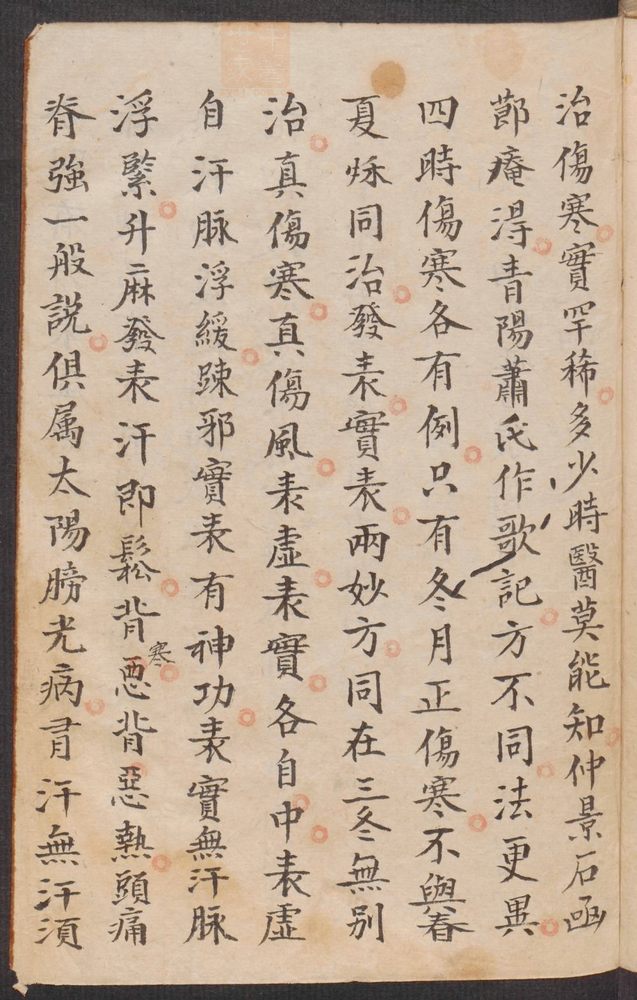 治傷寒實罕稀多少時醫莫能知仲景石函
節庵得青陽蕭氏作歌記方不同法更異
四時傷寒各有例只有冬月正傷寒不與春
夏秌同治發表實表兩妙方同在三冬無別
治真傷寒真傷風表虛表實各自中表虛
自汗脉浮緩踈邪實表有神功表實無汗脉
浮緊升麻發表汗即鬆背惡寒背惡熱頭痛
脊強一般說俱属太陽膀光病有汗無汗須